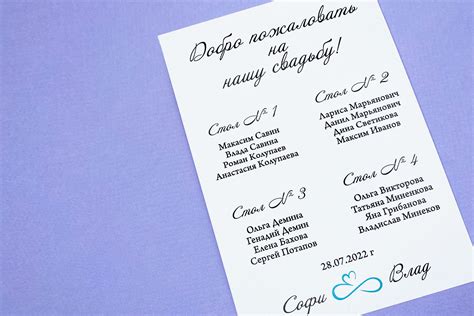 Добро пожаловать
на
нашу свадьбу!
Стол № 1
Макасим Савин
Влада Савина
Роман Колупаев
Анастасия Колупаева
Стол № 2
Лариса Марьянович
Данил Марьянович
Дина Светикова
Максим Иванов
Стол № 3
Ольга Демина
Генадий Демин
Елена Бахова
Сергей Потапов
Стол № 4
Ольга Викторова
Татьяна Миненкова
Яна Грибанова
Владислав Минеков
28.07.2022 г
Софи Влад